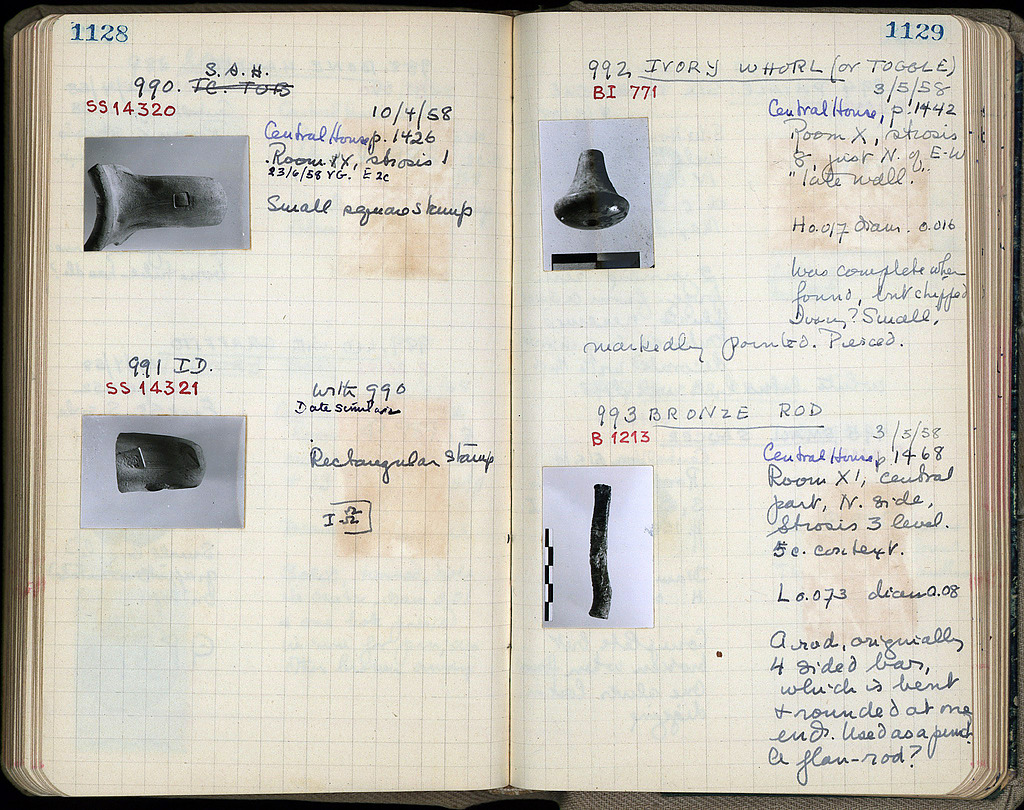 1128
S.A.H.
990. I.C. TUB
SS 14320
10/4/58
Central House p. 1426
Room IX, strosis 1
23/6/58 VG. E 2c
Small square stamp
991 ID.
SS 14321
with 990
Date similar
Rectangular stamp
I
1129
992 IVORY WHORL (or TOGGLE)
BI 771
3/5/58
Central House, p. 1442
Room X, strosis
8, just N. of E-W
"late wall."
H 0.017 diam. 0.016
Was complete when
found, but chipped
Ivory? Small,
markedly pointed. Pierced.
993 BRONZE ROD
B 1213
3/5/58
Central House p 1468
Room XI, central
part, N. side,
strosis 3 level.
5 c. context.
L 0.073 diam 0.08
A rod, originally
4 sided bar,
which is bent
+ rounded at one
end. Used as a punch
A flan-rod?